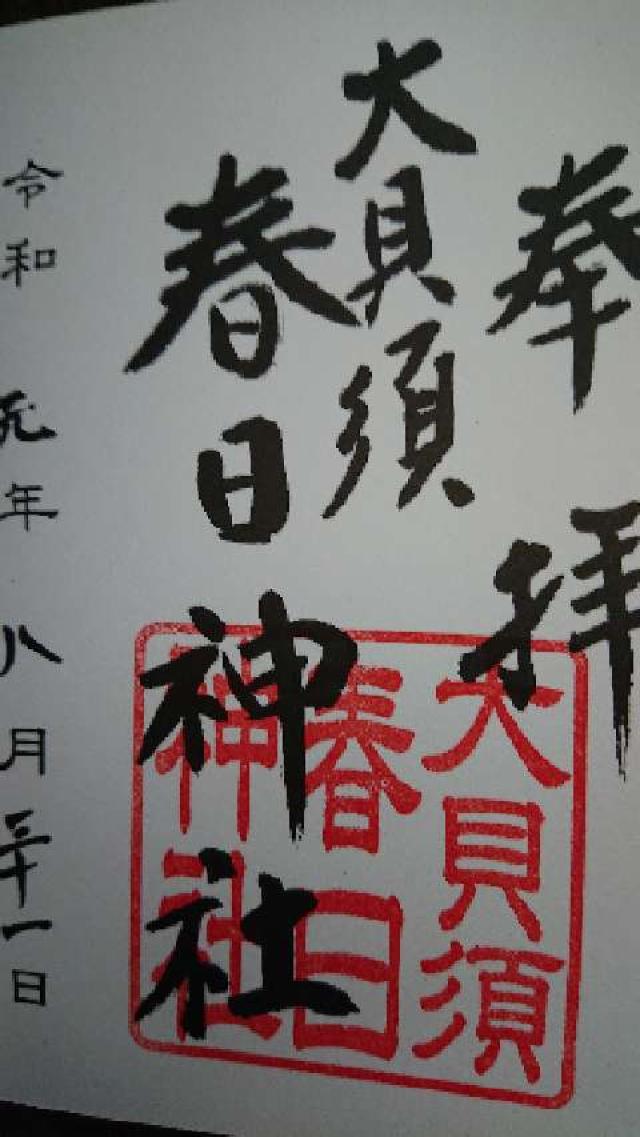 奉拝
大貝須
春日神社
大貝須
春日
神社
令和元年八月三十一日